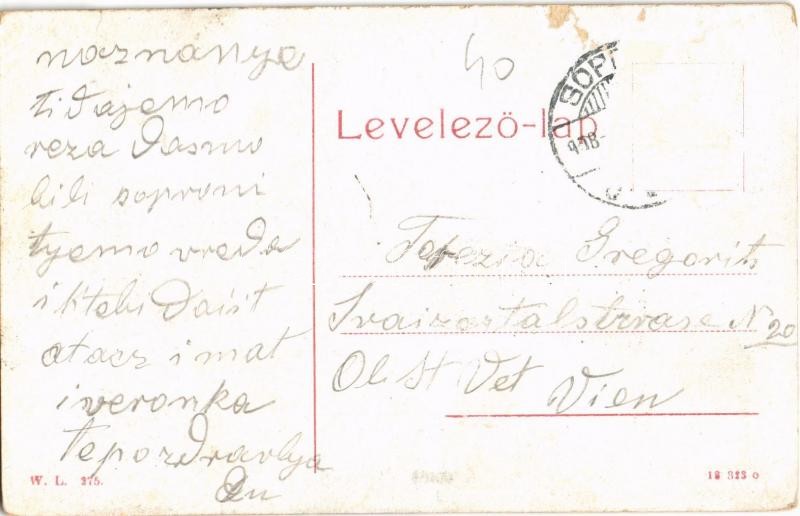 naznanye
ti dajemo
reza dasmo
bili soproni
tyemo vreda
i k tebi daist
otacz i mat
i veronka
te pozdravlya
40
SOP
918
Levelező-lap
Terezia Gregorits
Svaizertalstrase N 20
Ob St Vet
Vien
W. L. 275.
18 323 o